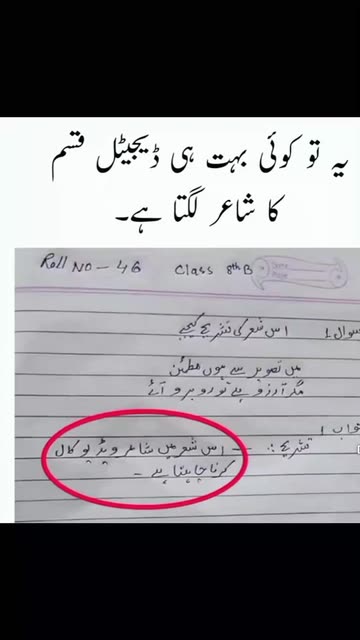 یہ تو کوئی بہت ہی ڈیجیٹل قسم
کا شاعر لگتا ہے۔
Roll No - 46 Class 8th B
سوال! اس شعر کی تشریح کیجیے
میں تصویر سے ہوں مطمئن
مگر آرزو ہے تو روبرو آئے
جواب!
تشریح: - - اس شعر میں شاعر ویڈیو کال
کرنا چاہتا ہے -